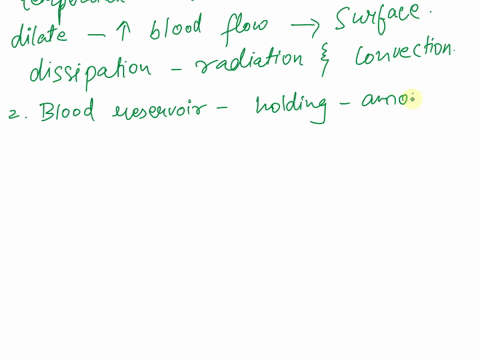 dilate - ↑ blood flow → Surface.
dissipation - radiation & convection.
2. Blood reservoir - holding -